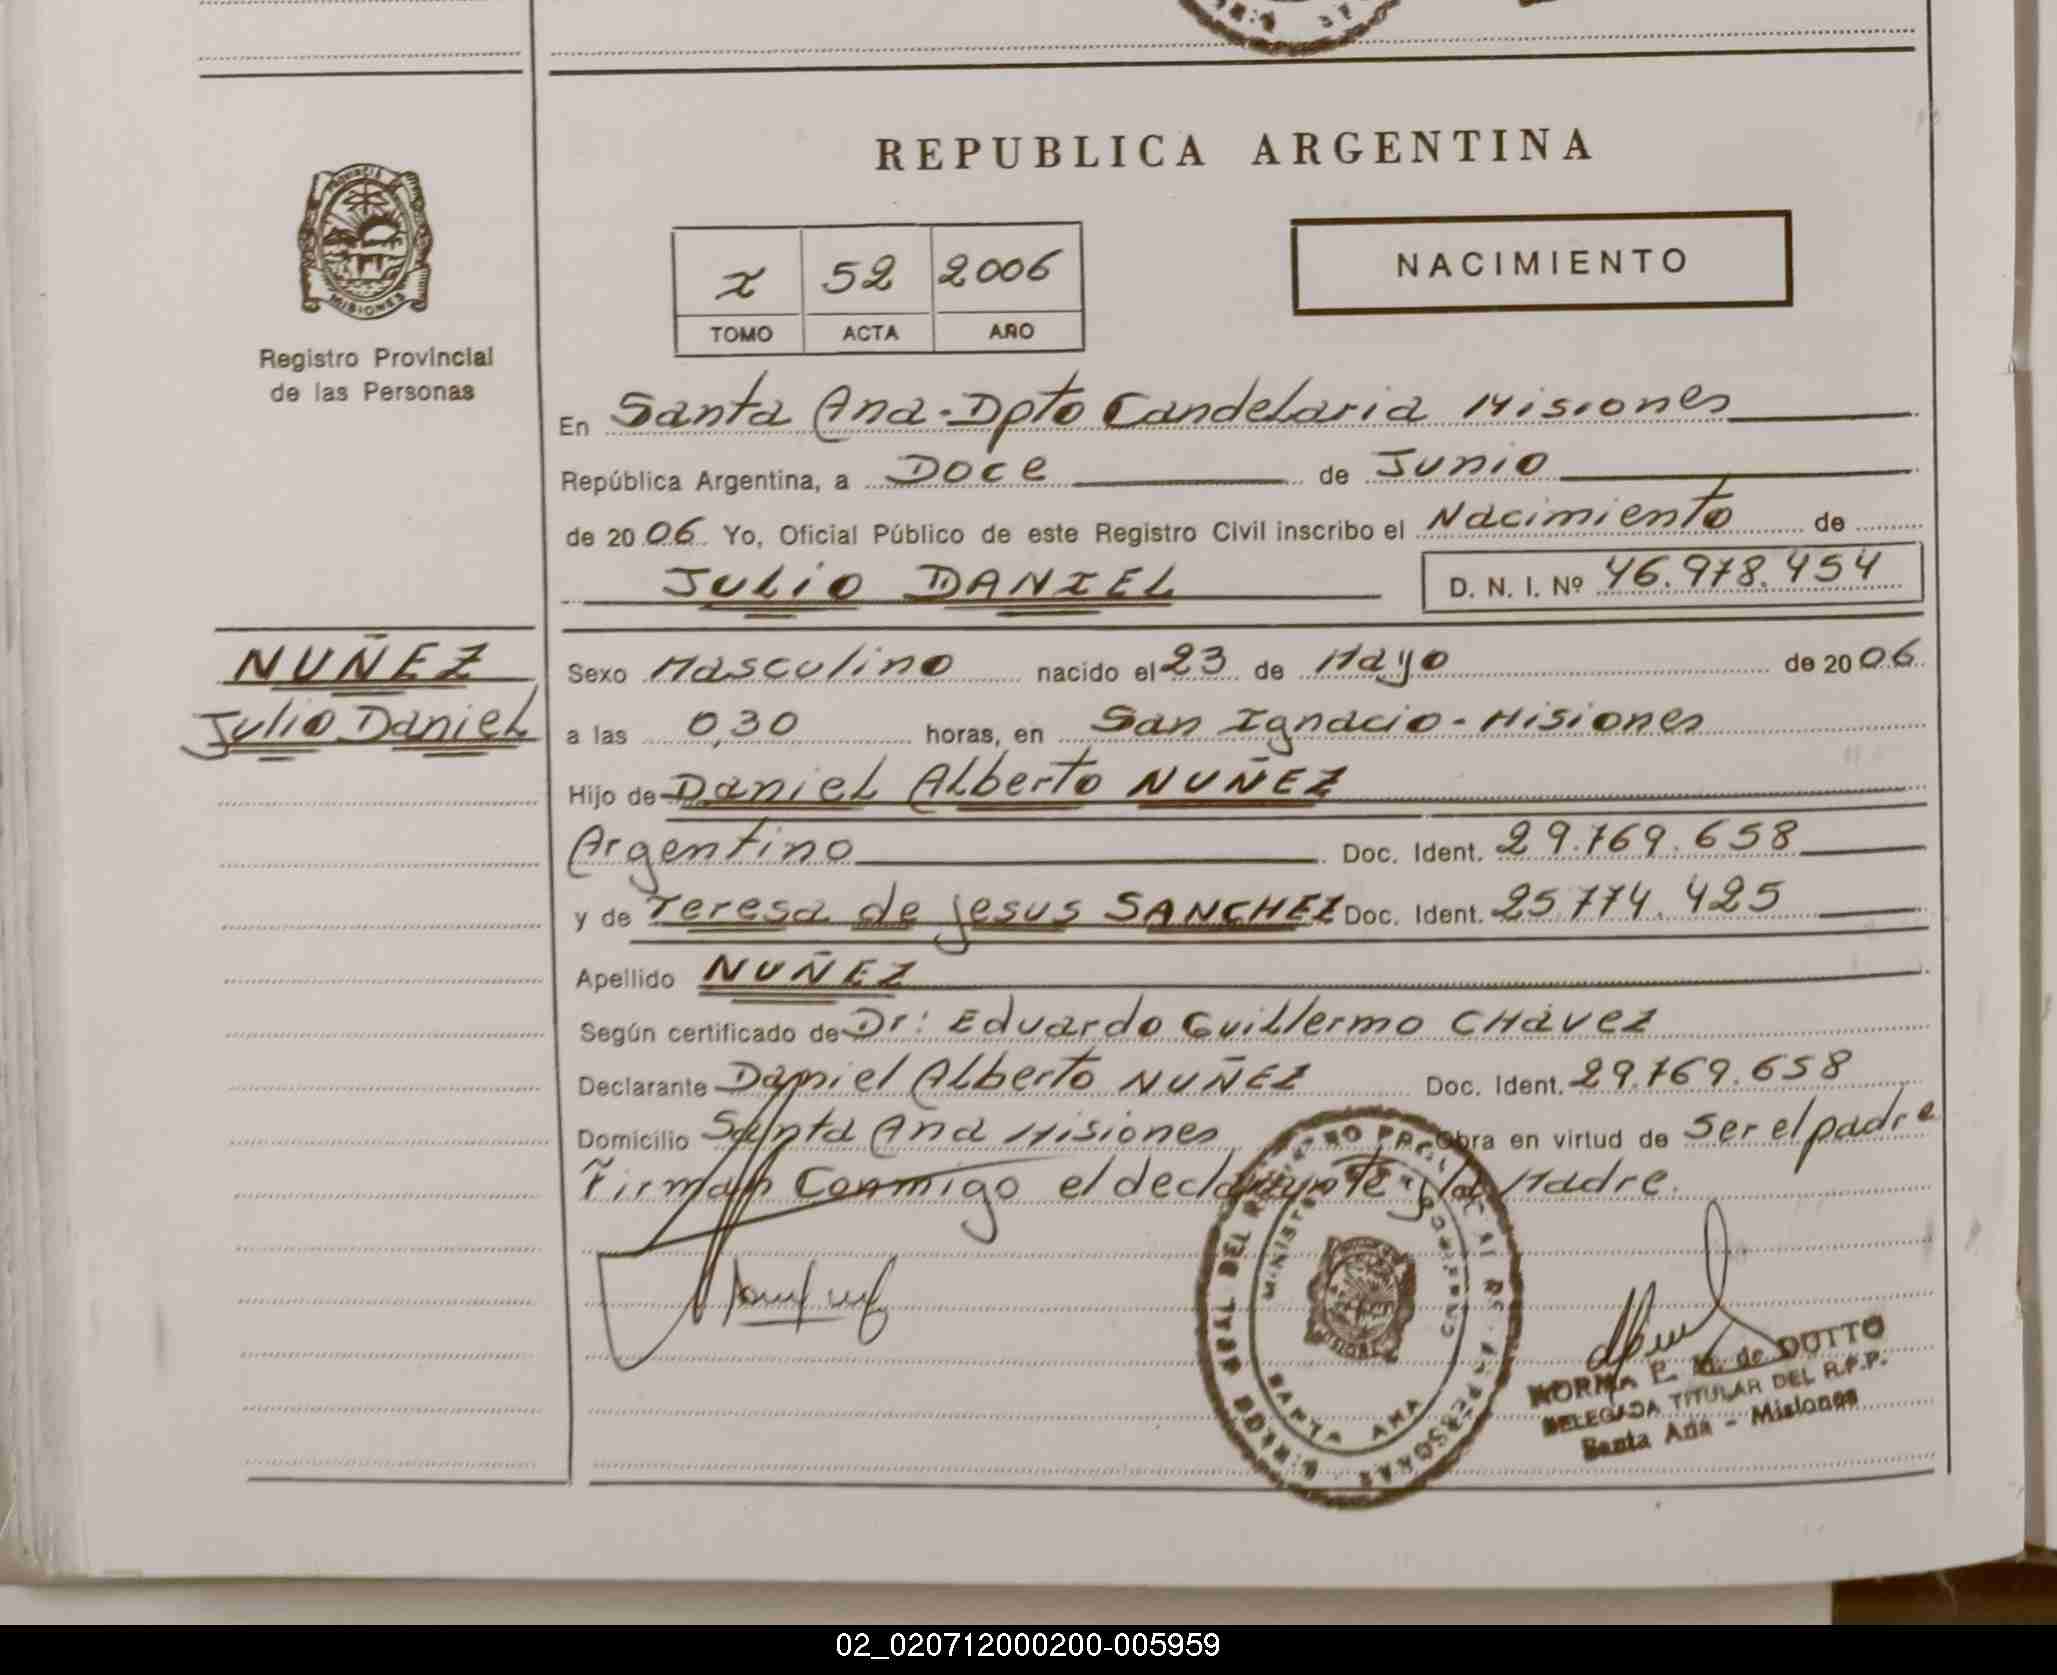 REPUBLICA ARGENTINA
PROVINCIA
MISIONES
Registro Provincial
de las Personas
I 52 2006
TOMO ACTA AÑO
NACIMIENTO
En Santa Ana - Dpto Candelaria Misiones
República Argentina, a Doce de Junio
de 2006 Yo, Oficial Público de este Registro Civil inscribo el Nacimiento de
JULIO DANIEL D. N. I. Nº 46.978.454
NUÑEZ
Julio Daniel
Sexo Masculino nacido el 23 de Mayo de 2006
a las 0,30 horas, en San Ignacio - Misiones
Hijo de Daniel Alberto NUÑEZ
Argentino Doc. Ident. 29.769.658
y de Teresa de Jesus SANCHEZ Doc. Ident. 25774.425
Apellido NUÑEZ
Según certificado de Dr: Eduardo Guillermo CHávez
Declarante Daniel Alberto NUÑEZ Doc. Ident. 29.769.658
Domicilio Santa Ana Misiones Obra en virtud de Ser el padre
Firman Conmigo el declarante y la Madre.
SANTA ANA
NORMA E. M. de DUTTO
DELEGADA TITULAR DEL R.P.P.
Santa Ana - Misiones
02_020712000200-005959